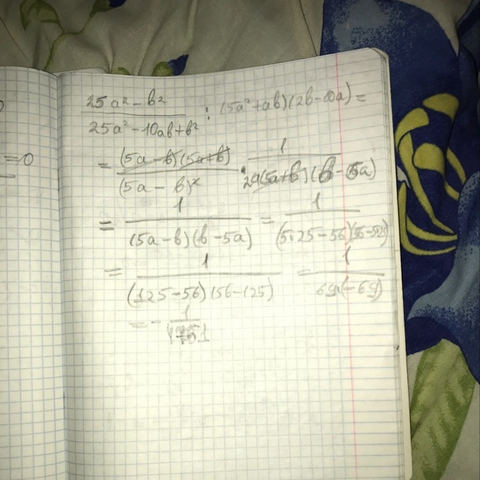 (25a² - b²)/(25a² - 10ab + b²) : (5a² + ab)(2b - 10a) =
= (5a - b)(5a + b)/(5a - b)² · 1/(2a(5a + b)(b - 5a)
= 1/((5a - b)(b - 5a)) = 1/((5·25 - 56)(56 - 5·25)
= 1/((125 - 56)(56 - 125)) = 1/(69·(-69))
= - 1
=0